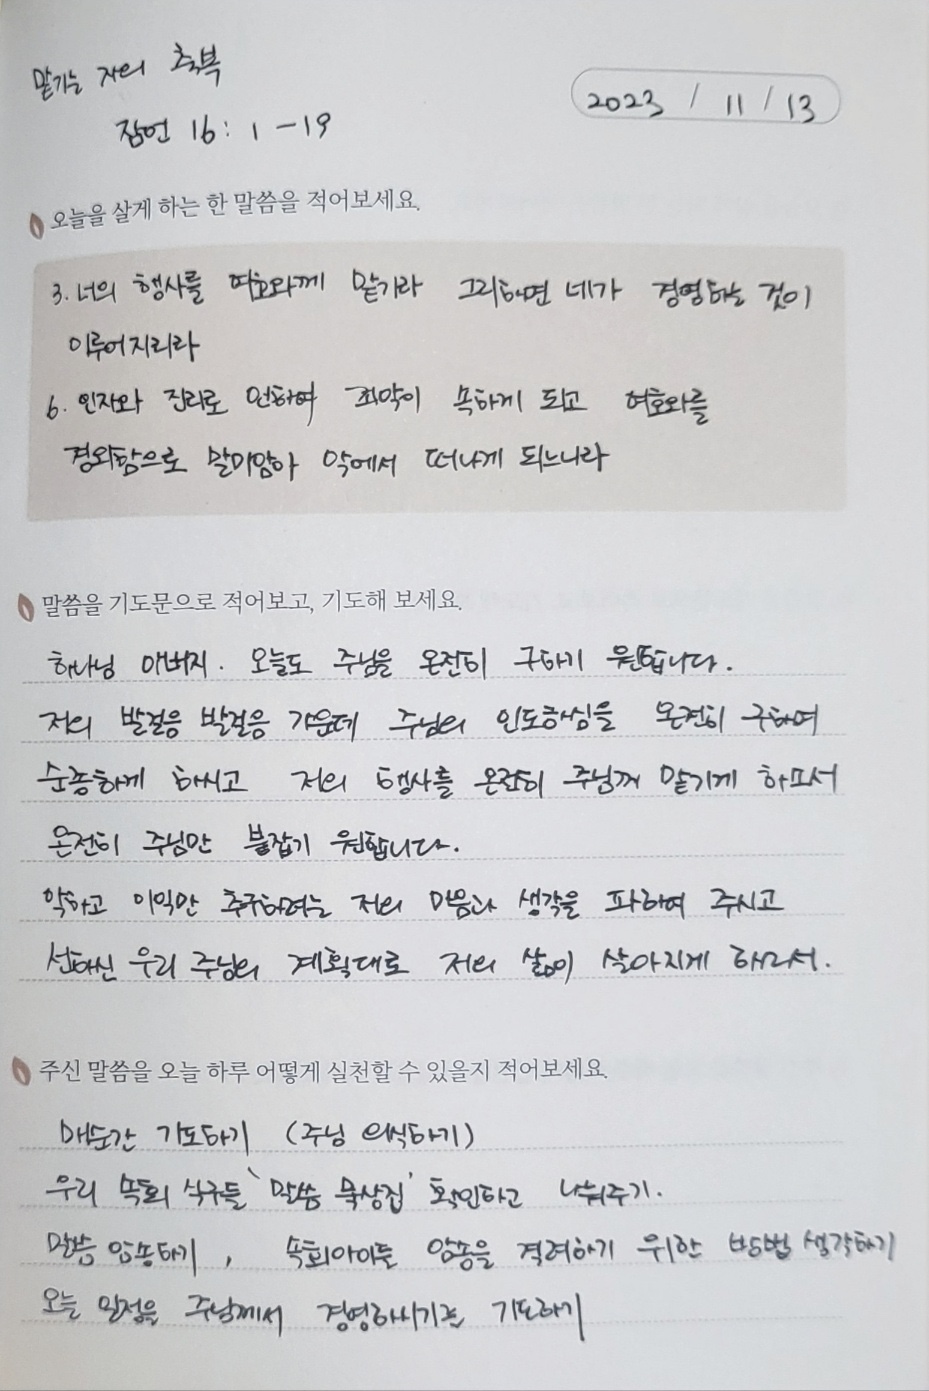 맡기는 자의 축복
2023 / 11 / 13
잠언 16 : 1 - 19
오늘을 살게 하는 한 말씀을 적어보세요.
3. 너의 행사를 여호와께 맡기라 그리하면 네가 경영하는 것이
이루어지리라
6. 인자와 진리로 인하여 죄악이 속하게 되고 여호와를
경외함으로 말미암아 악에서 떠나게 되느니라
말씀을 기도문으로 적어보고, 기도해 보세요.
하나님 아버지. 오늘도 주님을 온전히 구하기 원합니다.
저의 발걸음 발걸음 가운데 주님의 인도하심을 온전히 구하여
순종하게 하시고 저의 행사를 온전히 주님께 맡기게 하소서
온전히 주님만 붙잡기 원합니다.
악하고 이익만 추구하려는 저의 마음과 생각을 파하여 주시고
선하신 우리 주님의 계획대로 저의 삶이 살아지게 하소서.
주신 말씀을 오늘 하루 어떻게 실천할 수 있을지 적어보세요.
매순간 기도하기 (주님 의식하기)
우리 속회 식구들 '말씀 묵상집' 확인하고 나눠주기.
말씀 암송하기, 속회아이들 암송을 격려하기 위한 방법 생각하기
오늘 일정을 주님께서 경영하시기를 기도하기